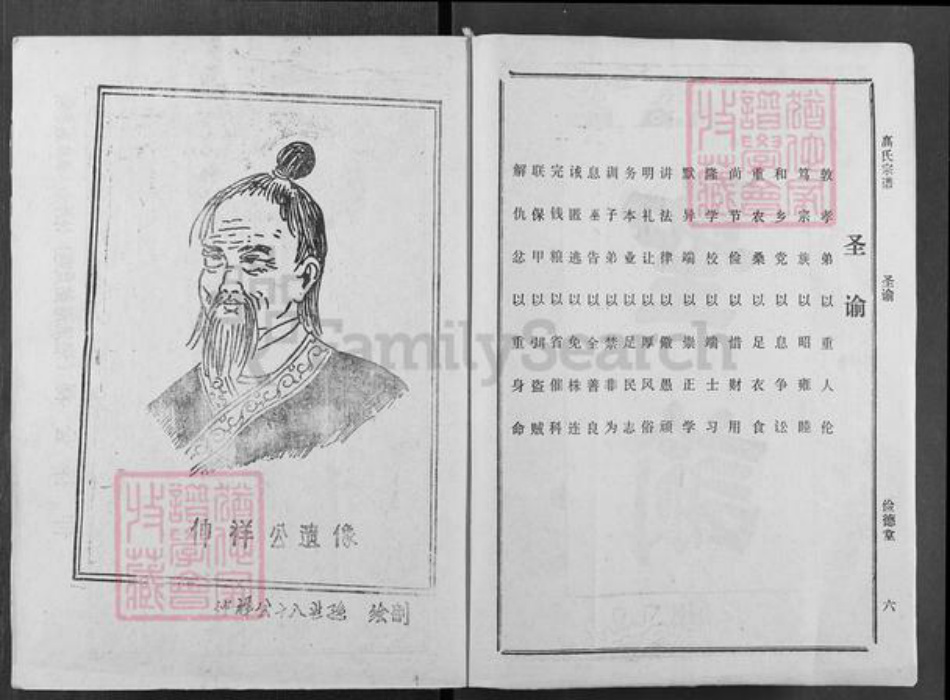 高氏宗谱
圣谕
俭德堂
六
圣谕
敦孝弟以重人伦
笃宗族以昭雍睦
和乡党以息争讼
重农桑以足衣食
尚节俭以惜财用
隆学校以端士习
默异端以崇正学
讲法律以儆愚顽
明礼让以厚风俗
务本业以足民志
训子弟以禁非为
息巫告以全善良
诫匿逃以免株连
完钱粮以省催科
联保甲以弭盗贼
解仇忿以重身命
仲祥公遺像
仲祥公十八世孫 绘制
猶他家譜學會收藏
猶他家譜學會收藏
FamilySearch